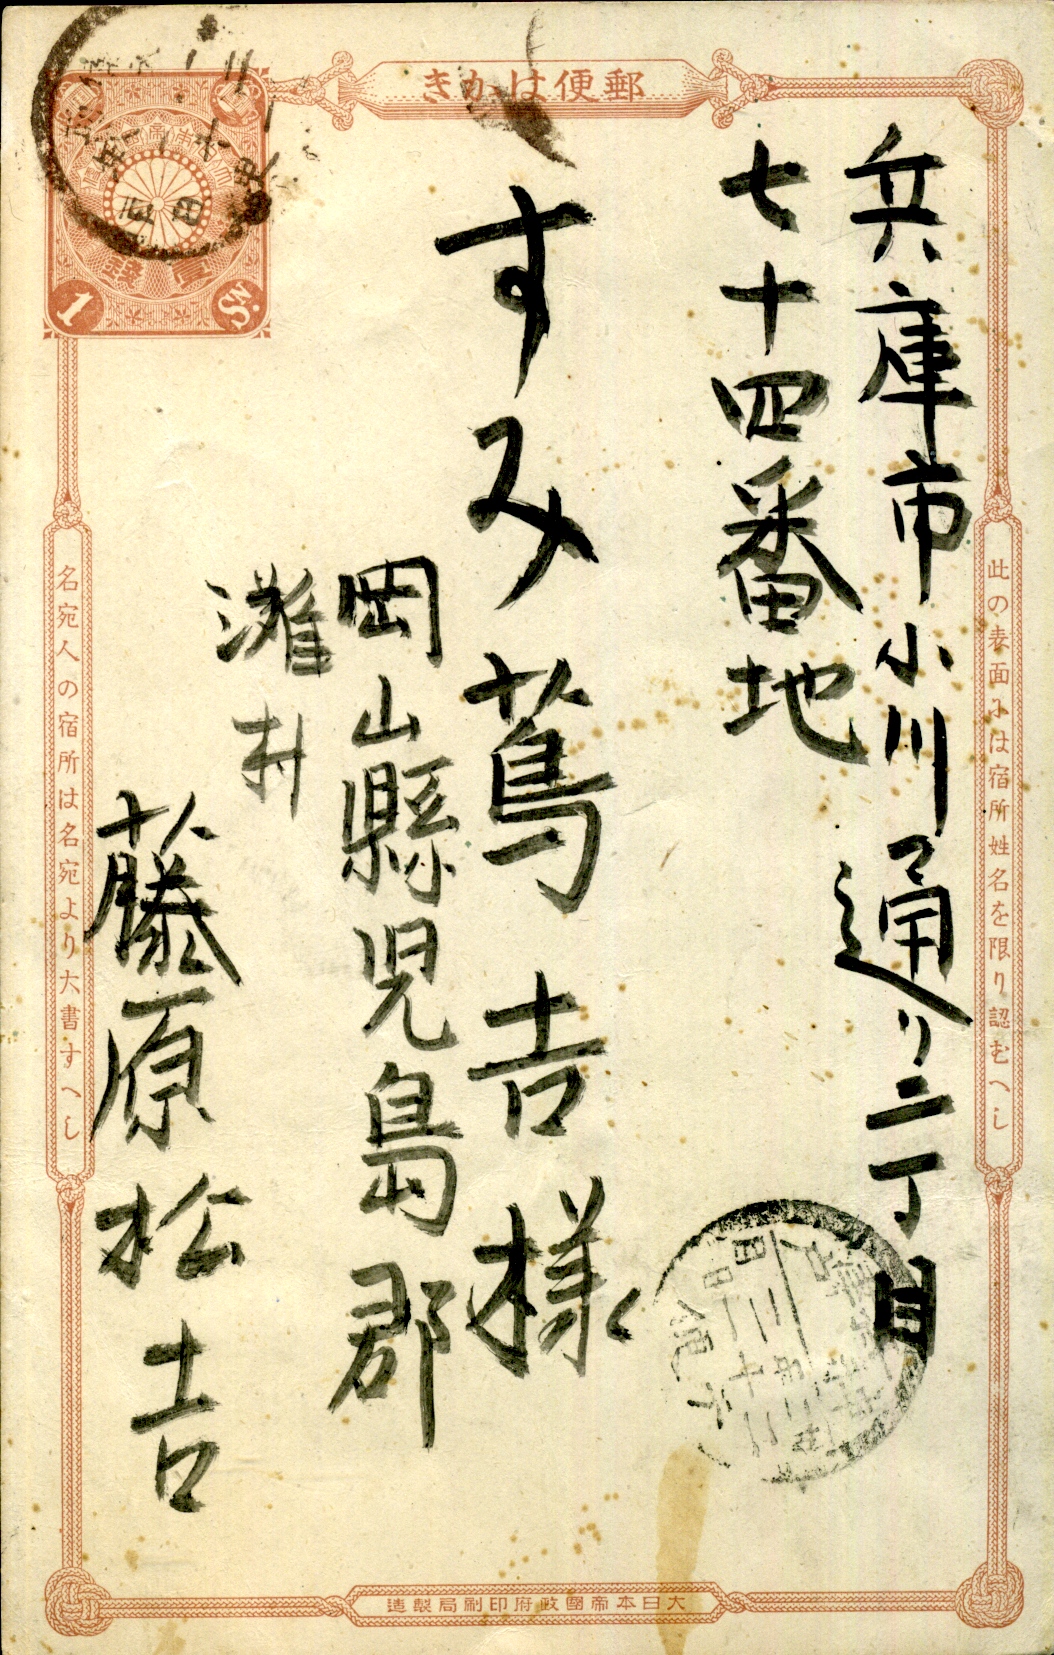 郵便はかき
此の表面には宿所姓名を限り認むへし
兵庫市小川通り二丁目
七十四番地
すみ蔦吉様
岡山縣児島郡
灘村
藤原松吉
名宛人の宿所は名宛より大書すへし
1 Sn.
壹錢
大日本帝國政府印刷局製造